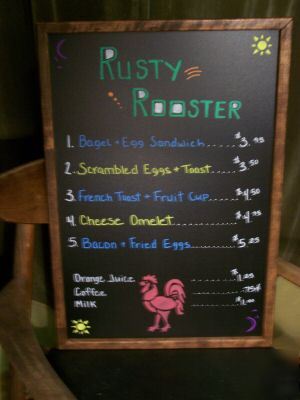 Rusty
Rooster
1. Bagel + Egg Sandwich......$3.95
2. Scrambled Eggs + Toast......$3.50
3. French Toast + Fruit Cup......$4.50
4. Cheese Omelet......$4.75
5. Bacon + Fried Eggs......$5.25
Orange Juice ......$1.25
Coffee ......75¢
Milk ......$1.00